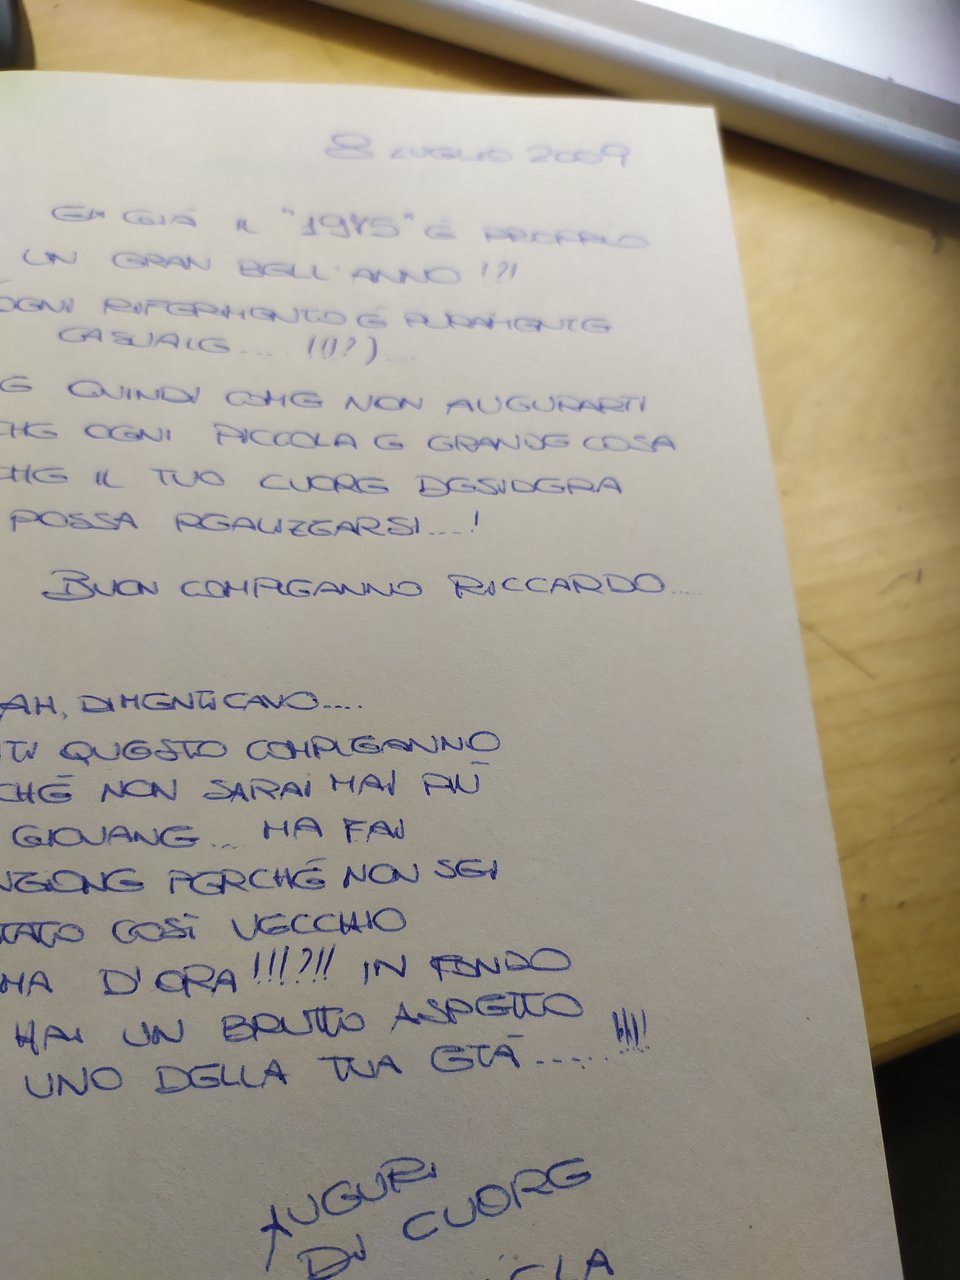 8 LUGLIO 2009
EH GIÀ IL "1975" È PROPRIO
UN GRAN BELL'ANNO !?!
(OGNI RIFERIMENTO È PURAMENTE
CASUALE.... !!!?)...
E QUINDI COME NON AUGURARTI
CHE OGNI PICCOLA E GRANDE COSA
CHE IL TUO CUORE DESIDERA
POSSA REALIZZARSI....!
BUON COMPLEANNO RICCARDO.....
AH, DIMENTICAVO....
TI QUESTO COMPLEANNO
CHÉ NON SARAI MAI PIÙ
GIOVANE... MA FAI
NZIONE PERCHÉ NON SEI
TATO COSÌ VECCHIO
MA D'ORA!!!?!! IN FONDO
HAI UN BRUTTO ASPETTO
UNO DELLA TUA ETÀ...... !!!!!
AUGURI
DI CUORE